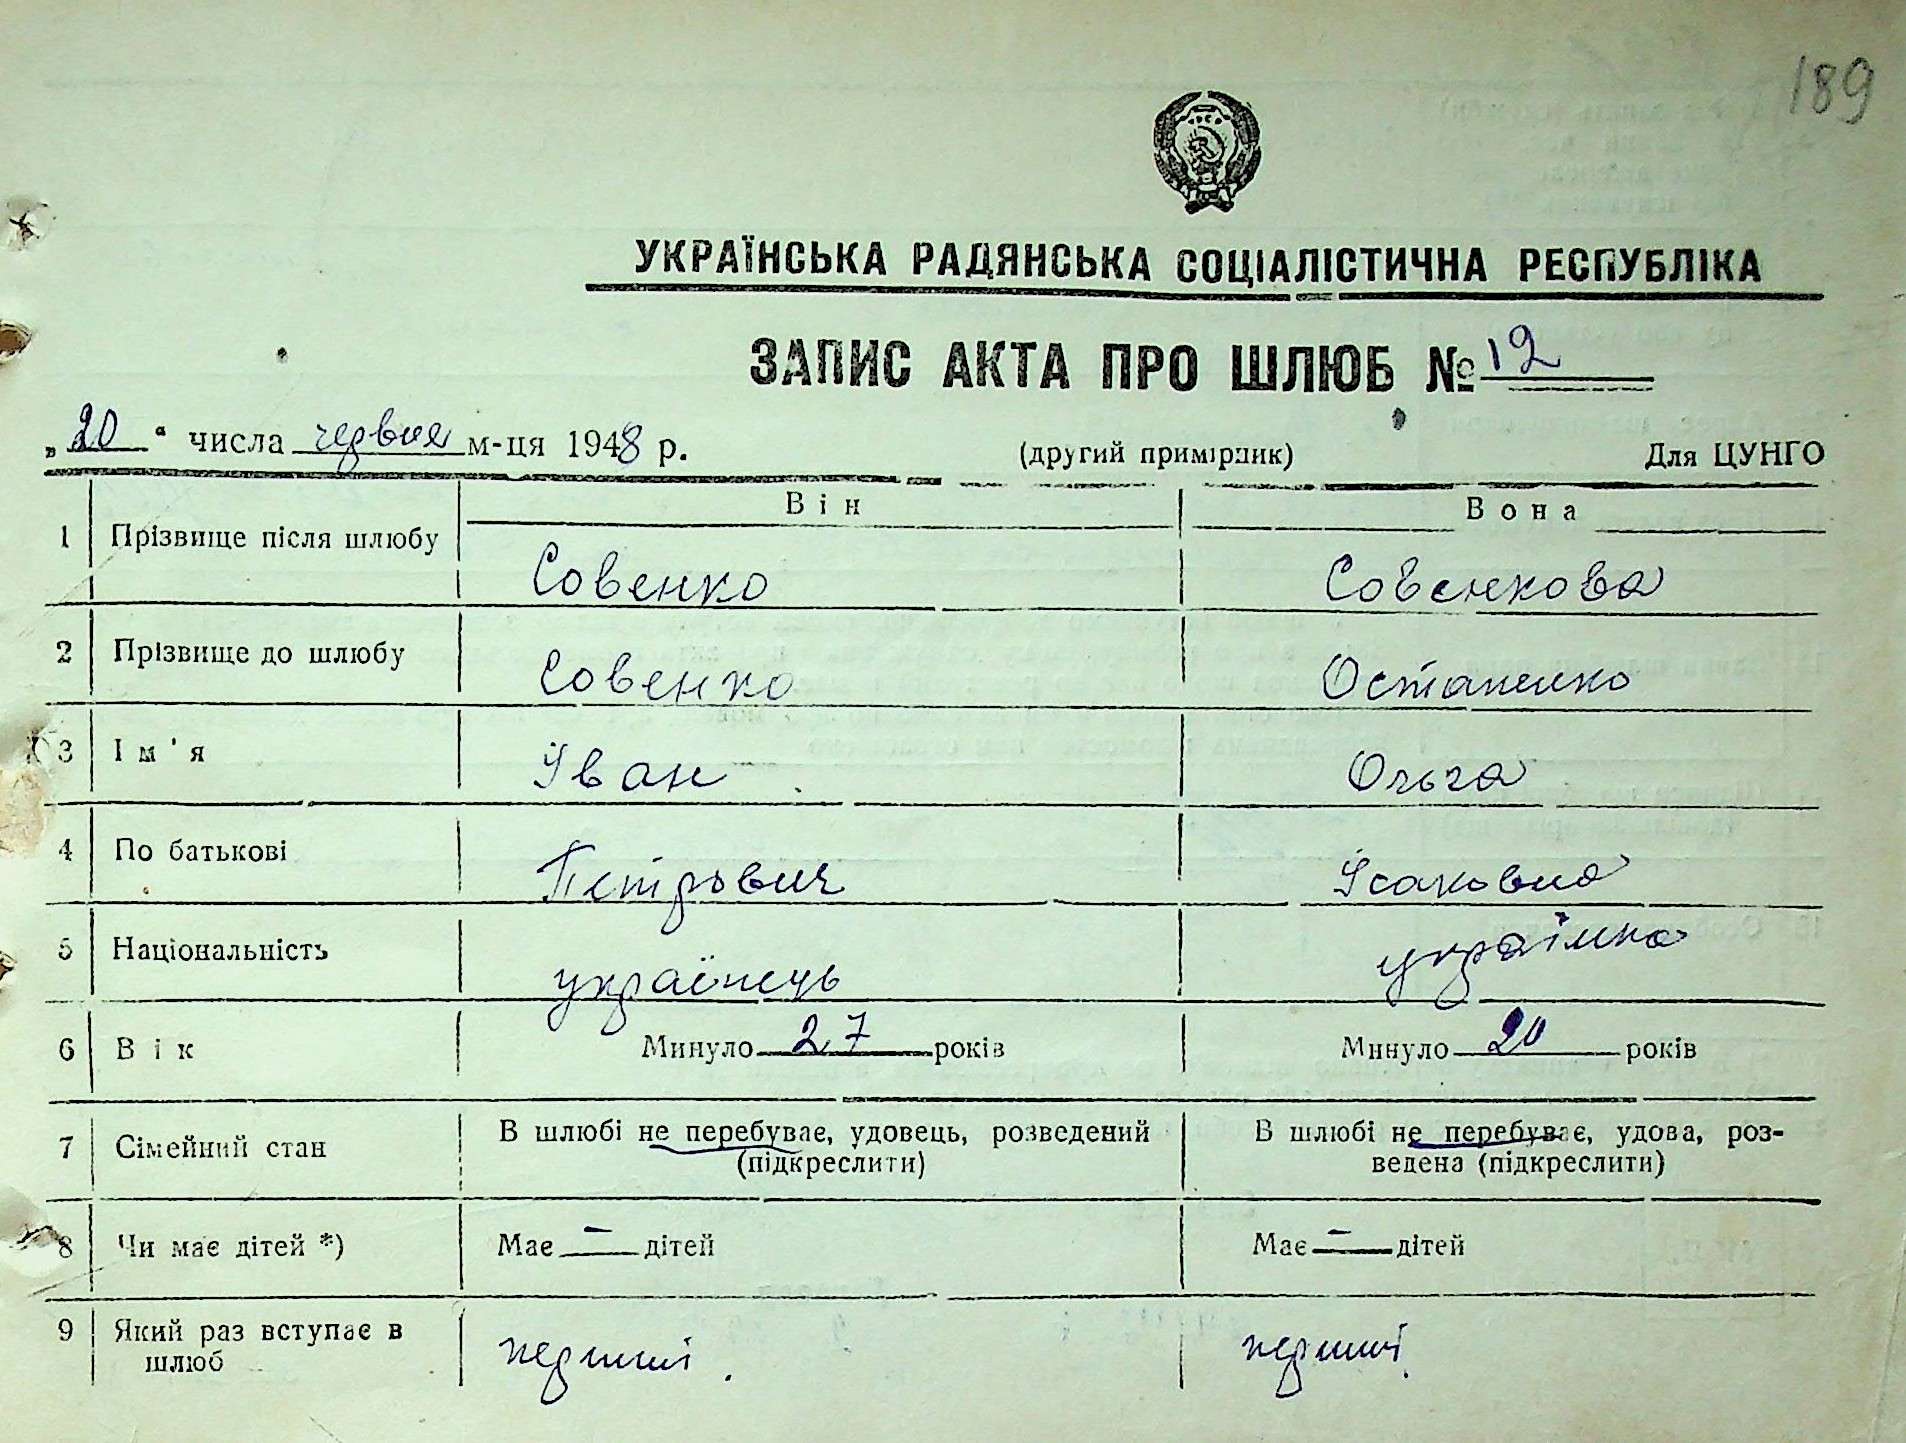 189
УКРАЇНСЬКА РАДЯНСЬКА СОЦІАЛІСТИЧНА РЕСПУБЛІКА
ЗАПИС АКТА ПРО ШЛЮБ № 12
„20“ числа червня м-ця 1948 р. (другий примірник) Для ЦУНГО
Він Вона
1 Прізвище після шлюбу Совенко Совенкова
2 Прізвище до шлюбу Совенко Остапенко
3 Ім'я Іван Ольга
4 По батькові Петрович Ісаковна
5 Національність українець українка
6 Вік Минуло 27 років Минуло 20 років
7 Сімейний стан В шлюбі не перебуває, удовець, розведений (підкреслити) В шлюбі не перебуває, удова, роз-
ведена (підкреслити)
8 Чи має дітей *) Має — дітей Має — дітей
9 Який раз вступає в шлюб перший. перший.